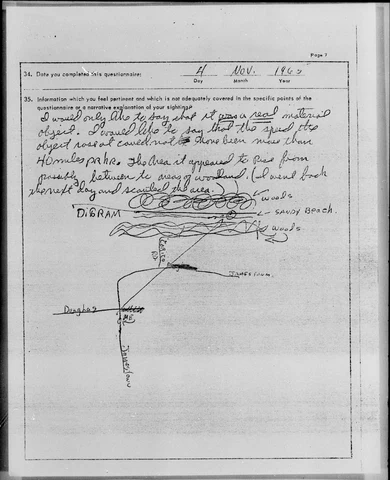 Page 7
34. Date you completed this questionnaire: 4 Nov. 196
Day Month Year
35. Information which you feel pertinent and which is not adequately covered in the specific points of the
questionnaire or a narrative explanation of your sighting.
I would only like to say that it was a real material
object. I would like to say that the speed the
object rose at could not have been more than
40 miles per hr. The Area it appeared to rise from
possibly between to areas of woodland. (I went back
the next day and scouted the area.)
woods
DIGRAM
SANDY BEACH.
woods
Jamestown
Douglas
ME
Jamestown